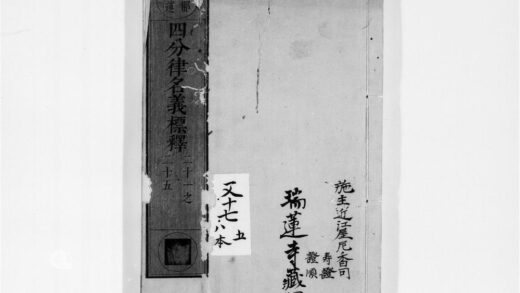 施主近江屋尼香司
寿證
證順
瑞蓮寺藏
又十七
五
八本
四分律名義標釋
二十一之
二十五